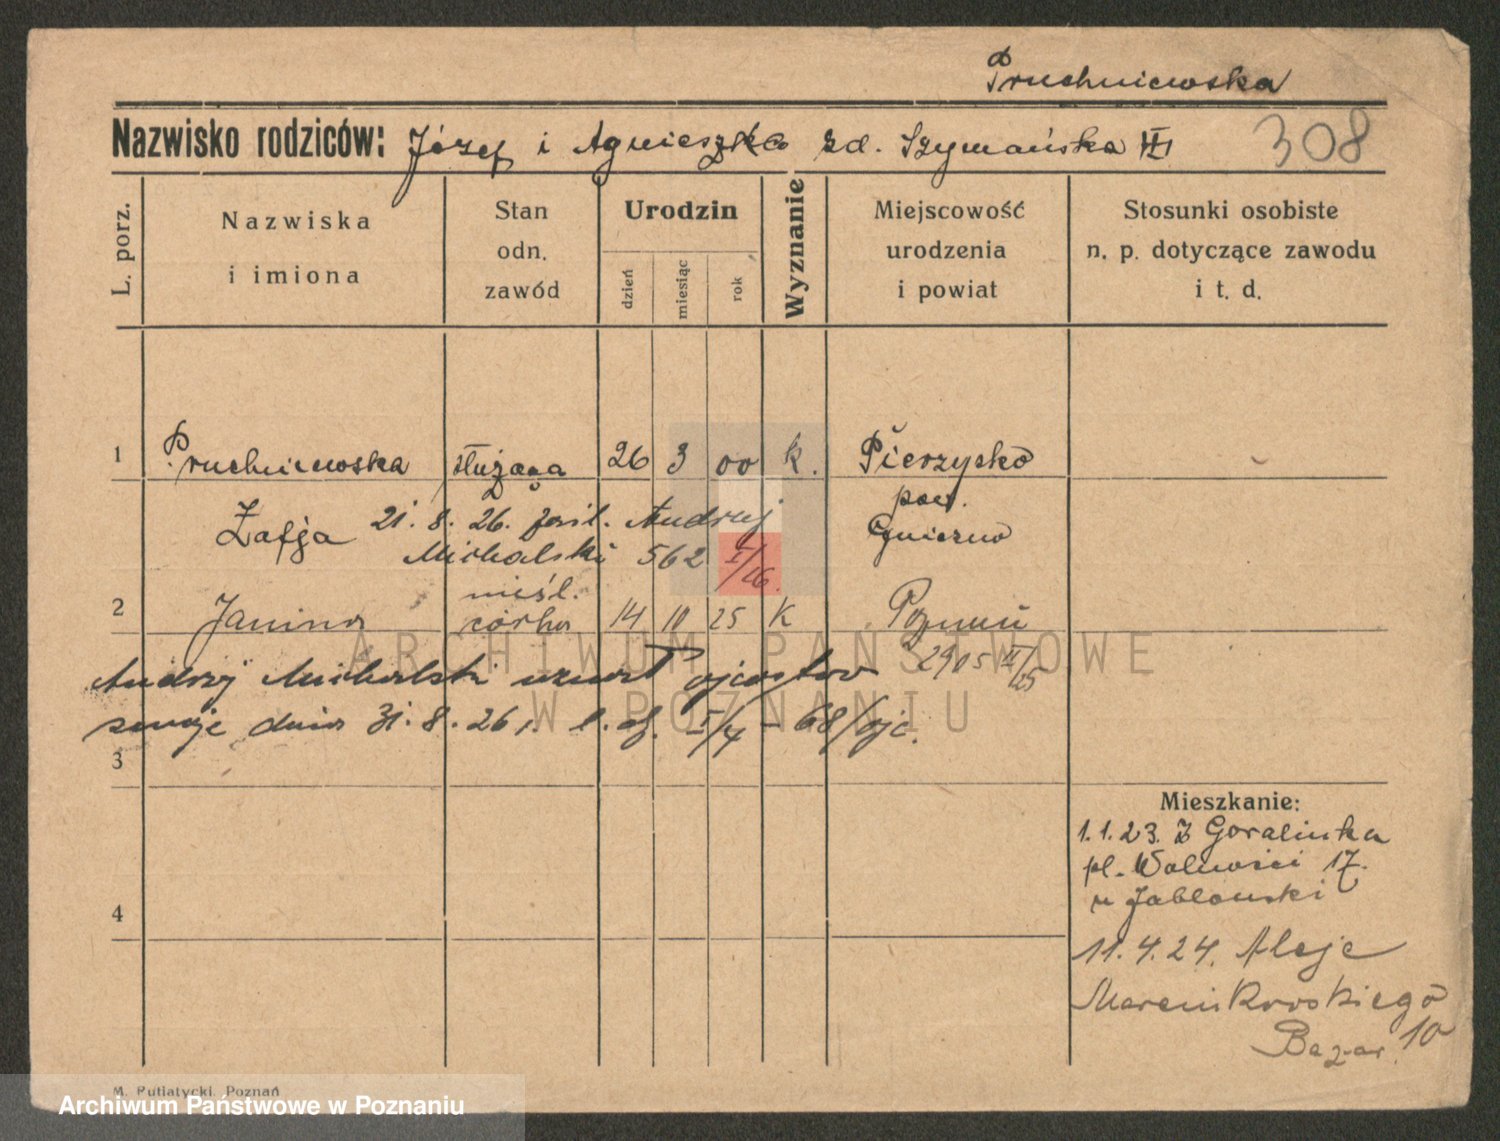 Pruchniewska
Nazwisko rodziców: Józef i Agnieszka zd. Szymańska III 308
L. porz.
Nazwiska
i imiona
Stan
odn.
zawód
Urodzin
dzień
miesiąc
rok
Wyznanie
Miejscowość
urodzenia
i powiat
Stosunki osobiste
n. p. dotyczące zawodu
i t. d.
1 Pruchniewska służąca 26 3 00 k. Pierzysko
pow.
Zofja 21. 8. 26. Andrzej Gniezno
Michalski 562 I/26.
nieśl.
2 Janina córka 14 10 25 K Poznań
2905 III/25
Andrzej Michalski uznał ojcostwo
swoje dnia 31. 8. 26 r. I/4 – 68/ojc.
3
Mieszkanie:
1. 1. 23. Z Goralinka
pl. Wolności 17.
u Jabłoński
4
11. 4. 24. Aleje
Marcinkowskiego
Bazar. 10
M. Putiatycki. Poznań
ARCHIWUM PAŃSTWOWE
W POZNANIU
Archiwum Państwowe w Poznaniu